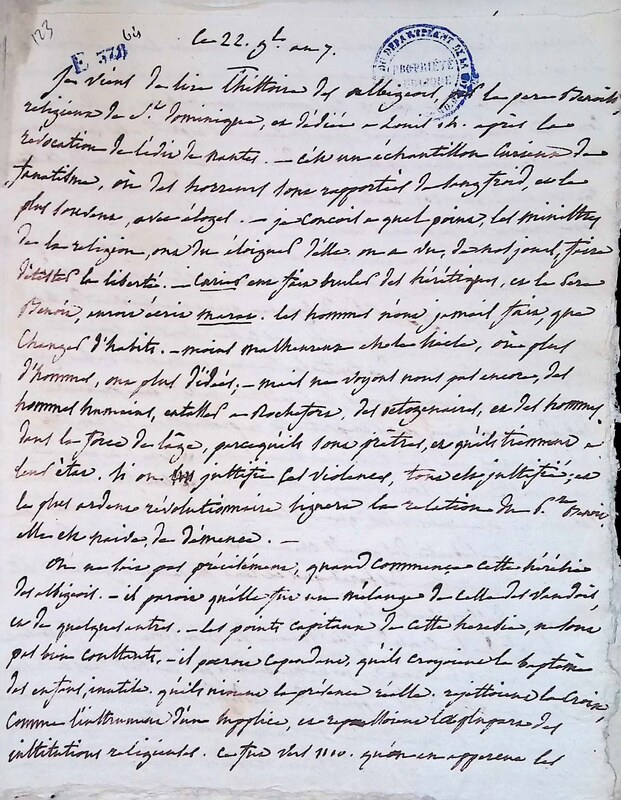 123
64
E 378
DU DEPARTEMENT DE LA
PROPRIÉTÉ
PUBLIQUE
Ce 22. g.bre an 7.
Je viens de lire l'histoire des albigeois, par le pere Benoist,
religieux de St. Dominique, et dédiée a Louis 14. après la
révocation de l'édit de nantes. - c'est un échantillon curieux de
fanatisme, où des horreurs sont rapportés de sang froid, et le
plus souvent, avec éloges. - je conçois a quel point, les ministres
de la religion, ont du éloigner d'elle. on a vu, de nos jours, faire
détester la liberté. - Carier eut fait bruler des hérétiques, et le pere
Benoit, auroit écrit marat. les hommes n'ont jamais fait, que
changer d'habits. - moins malheureux est le siècle, où plus
d'hommes, ont plus d'idées. - mais ne voyons nous pas encore, des
hommes humains, entasser a Rochefort, des octogénaires, et des hommes
dans la force de l'âge, parcequ'ils sont prêtres, et qu'ils tiennent a
leur état. si on justifie ces violences, tout est justifié; et
le plus ardent révolutionnaire signera la relation du P. Benoit,
elle est pleine de démence. -
On ne sait pas précisément, quand commença cette hérésie
des albigeois. - il paroit qu'elle fut un mélange de celle des Vaudois,
et de quelques autres. - les points capitaux de cette hérésie, ne sont
pas bien constants. - il paroit cependant, qu'ils croyoient le baptême
des enfans, inutile. qu'ils nioient la présence réelle. rejettoient la Croix,
comme l'instrument d'un supplice, et repoussoient la plupart des
institutions religieuses. ce fut vers 1110. qu'on en apperçut les